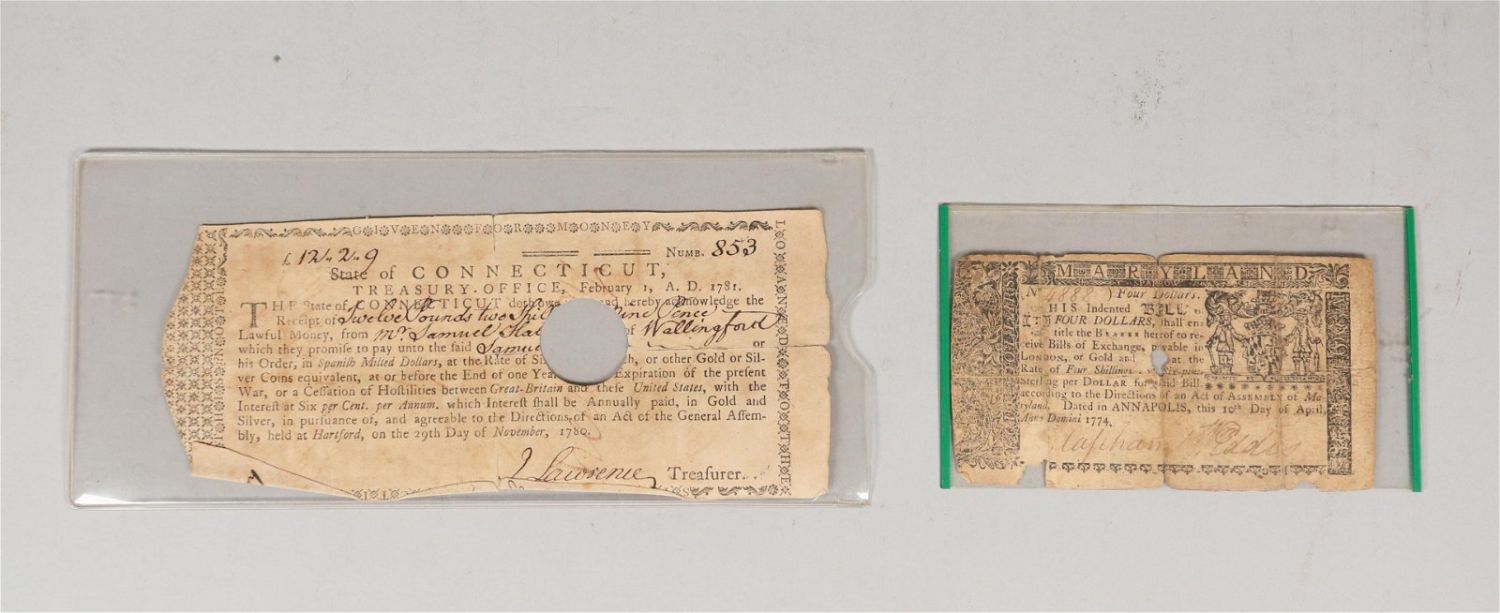 GIVEN FOR MONEY
LOANED TO THE
£ 12..2..9
NUMB. 853
State of CONNECTICUT,
TREASURY-OFFICE, February 1, A. D. 1781.
THE State of CONNECTICUT doth owe and hereby acknowledge the
Receipt of Twelve Pounds two Nine Pence
Lawful Money, from Mr. Samuel of Wallingford
which they promise to pay unto the said Samuel or
his Order, in Spanish Milled Dollars, at the Rate of or other Gold or Sil-
ver Coins equivalent, at or before the End of one Year Expiration of the present
War, or a Cessation of Hostilities between Great-Britain and these United States, with the
Interest at Six per Cent. per Annum. which Interest shall be Annually paid, in Gold and
Silver, in pursuance of, and agreeable to the Directions of an Act of the General Assem-
bly, held at Hartford, on the 29th Day of November, 1780.
J Lawrence Treasurer.
MARYLAND
No Four Dollars.
THIS Indented BILL of
FOUR DOLLARS, shall en-
title the BEARER hereof to re-
ceive Bills of Exchange, payable in
LONDON, or Gold and at the
Rate of Four Shillings
sterling per DOLLAR for said Bill,
according to the Directions of an Act of ASSEMBLY of Ma-
ryland. Dated in ANNAPOLIS, this 10th Day of April,
Anno Domini 1774.